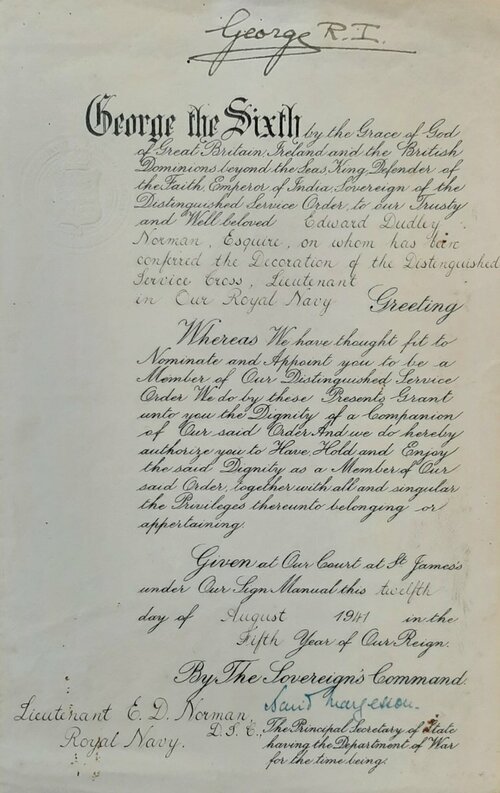 George R.I.
George the Sixth by the Grace of God
of Great Britain, Ireland and the British
Dominions beyond the Seas King, Defender of
the Faith, Emperor of India, Sovereign of the
Distinguished Service Order, to our Trusty
and Well beloved Edward Dudley
Norman, Esquire, on whom has been
conferred the Decoration of the Distinguished
Service Cross, Lieutenant
in Our Royal Navy Greeting
Whereas We have thought fit to
Nominate and Appoint you to be a
Member of Our Distinguished Service
Order We do by these Presents Grant
unto you the Dignity of a Companion
of Our said Order And we do hereby
authorize you to Have, Hold and Enjoy
the said Dignity as a Member of Our
said Order, together with all and singular
the Privileges thereunto belonging or
appertaining.
Given at Our Court at St James's
under Our Sign Manual this twelfth
day of August 1941 in the
Fifth Year of Our Reign.
By The Sovereign's Command.
David Margesson.
Lieutenant E. D. Norman,
D.S.C.,
Royal Navy.
The Principal Secretary of State
having the Department of War
for the time being.